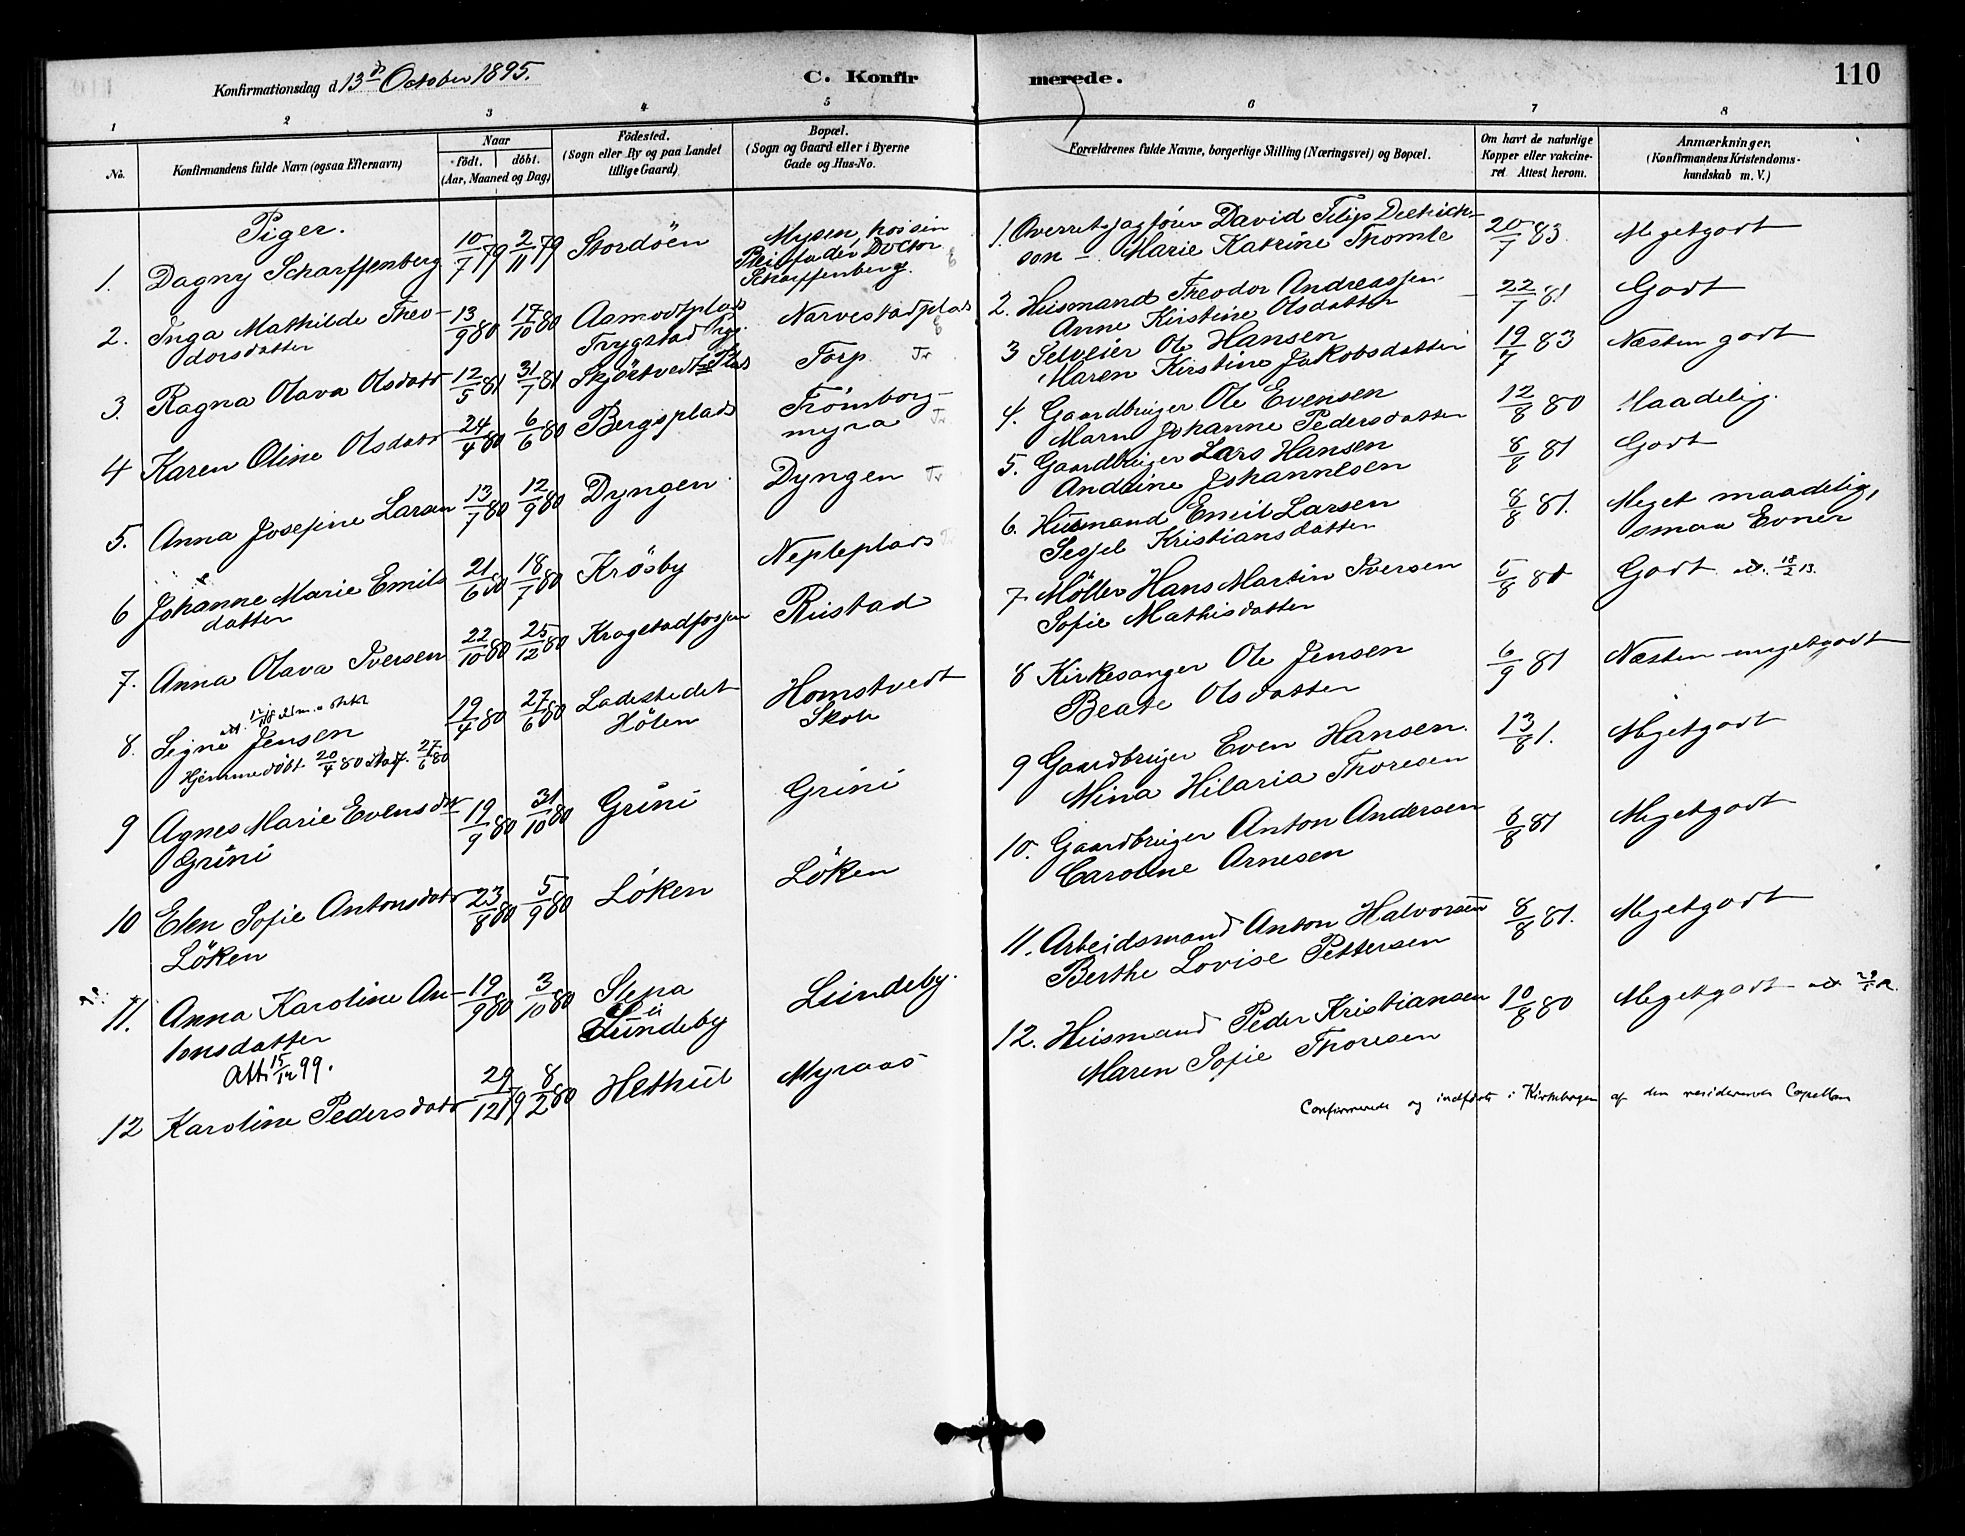 Konfirmationsdag d. 13de October 1895.
C. Konfirmerede.
110
1 2 3 4 5 6 7 8
No.
Konfirmandens fulde Navn (ogsaa Efternavn)
Naar
födt. döbt.
(Aar, Maaned og Dag)
Födested.
(Sogn eller By og paa Landet
tillige Gaard)
Bopæl.
(Sogn og Gaard eller i Byerne
Gade og Hus-No.
Forældrenes fulde Navne, borgerlige Stilling (Næringsvei) og Bopæl.
Om havt de naturlige
Kopper eller vakcine-
ret. Attest herom.
Anmærkninger.
(Konfirmandens Kristendoms-
kundskab m. V.)
Piger.
1. Dagny Scharffenberg 10/7 79 2/11 79 Stordöen Mysen, hos sin
Pleiefader Doctor
Scharffenberg.
1. Overretssagförer David Filip Diedrich-
son - Marie Katrine Thomle 20/7 83. Megetgodt
2. Inga Mathilde Theo-
dorsdatter 13/9 80 17/10 80 Aamodtplads
Trygstad Narvestadplads
2. Husmand Theodor Andreassen
Anne Kirstine Olsdatter 22/7 81 Godt
3. Ragna Olava Olsdatr 12/5 81 31/7 81 Skjörtvedt Plads Torp Tr
3 Selveier Ole Hansen
Maren Kirstine Jakobsdatter 19/7 83 Næsten godt
4 Karen Oline Olsdatr 24/4 80 6/6 80 Bergsplads Trömborg-
myra Tr
4. Gaardbruger Ole Evensen
Maren Johanne Pedersdatter 12/8 80 Maadelig.
5. Anna Josefine Larsen 13/7 80 12/9 80 Dyngen Dyngen Tr
5. Gaardbruger Lars Hansen
Andrine Johannesen 8/8 81 Godt
6 Johanne Marie Emils
datter 21/6 80 18/7 80 Krösby Nepleplads Tr
6. Husmand Emil Larsen
Sesjel Kristiansdatter 8/8 81. Meget maadelig,
smaa Evner
7. Anna Olava Iversen 22/10 80 25/12 80 Kragstadfossen Rustad
7 Möller Hans Martin Iversen
Sofie Mathisdatter 5/8 81 Godt 18/2 13.
8. Signe Jensen
Hjemmedöbt 20/4 80 Stadf. 27/6 80 19/4 80 27/6 80 Ladestedet
Hölen Homstvedt
Skole
8 Kirkesanger Ole Jensen
Beate Olsdatter 6/9 81 Næsten megetgodt
9 Agnes Marie Evensdtr
Grini 19/9 80 31/10 80 Grini Grini
9 Gaardbruger Even Hansen.
Mina Hilaria Thoresen 13/8 81. Megetgodt
10 Elen Sofie Antonsdatr
Löken 23/8 80 5/9 80 Löken Löken
10. Gaardbruger Anton Andersen
Caroline Arnesen 8/8 81 Megetgodt
11. Anna Karoline An-
tonsdatter
Att. 15/12 99. 19/9 80 3/10 80 Slepa
Lundeby Lundeby.
11. Arbeidsmand Anton Halvorsen
Berthe Lovise Pettersen 8/8 81. Megetgodt
12 Karoline Pedersdatr 29/12 79 8/2 80 Hethul Myraas
12. Husmand Peder Kristiansen
Maren Sofie Thoresen 10/8 80 Megetgodt
Confirmerede og indförte i Kirkebogen af den residerende Capellan